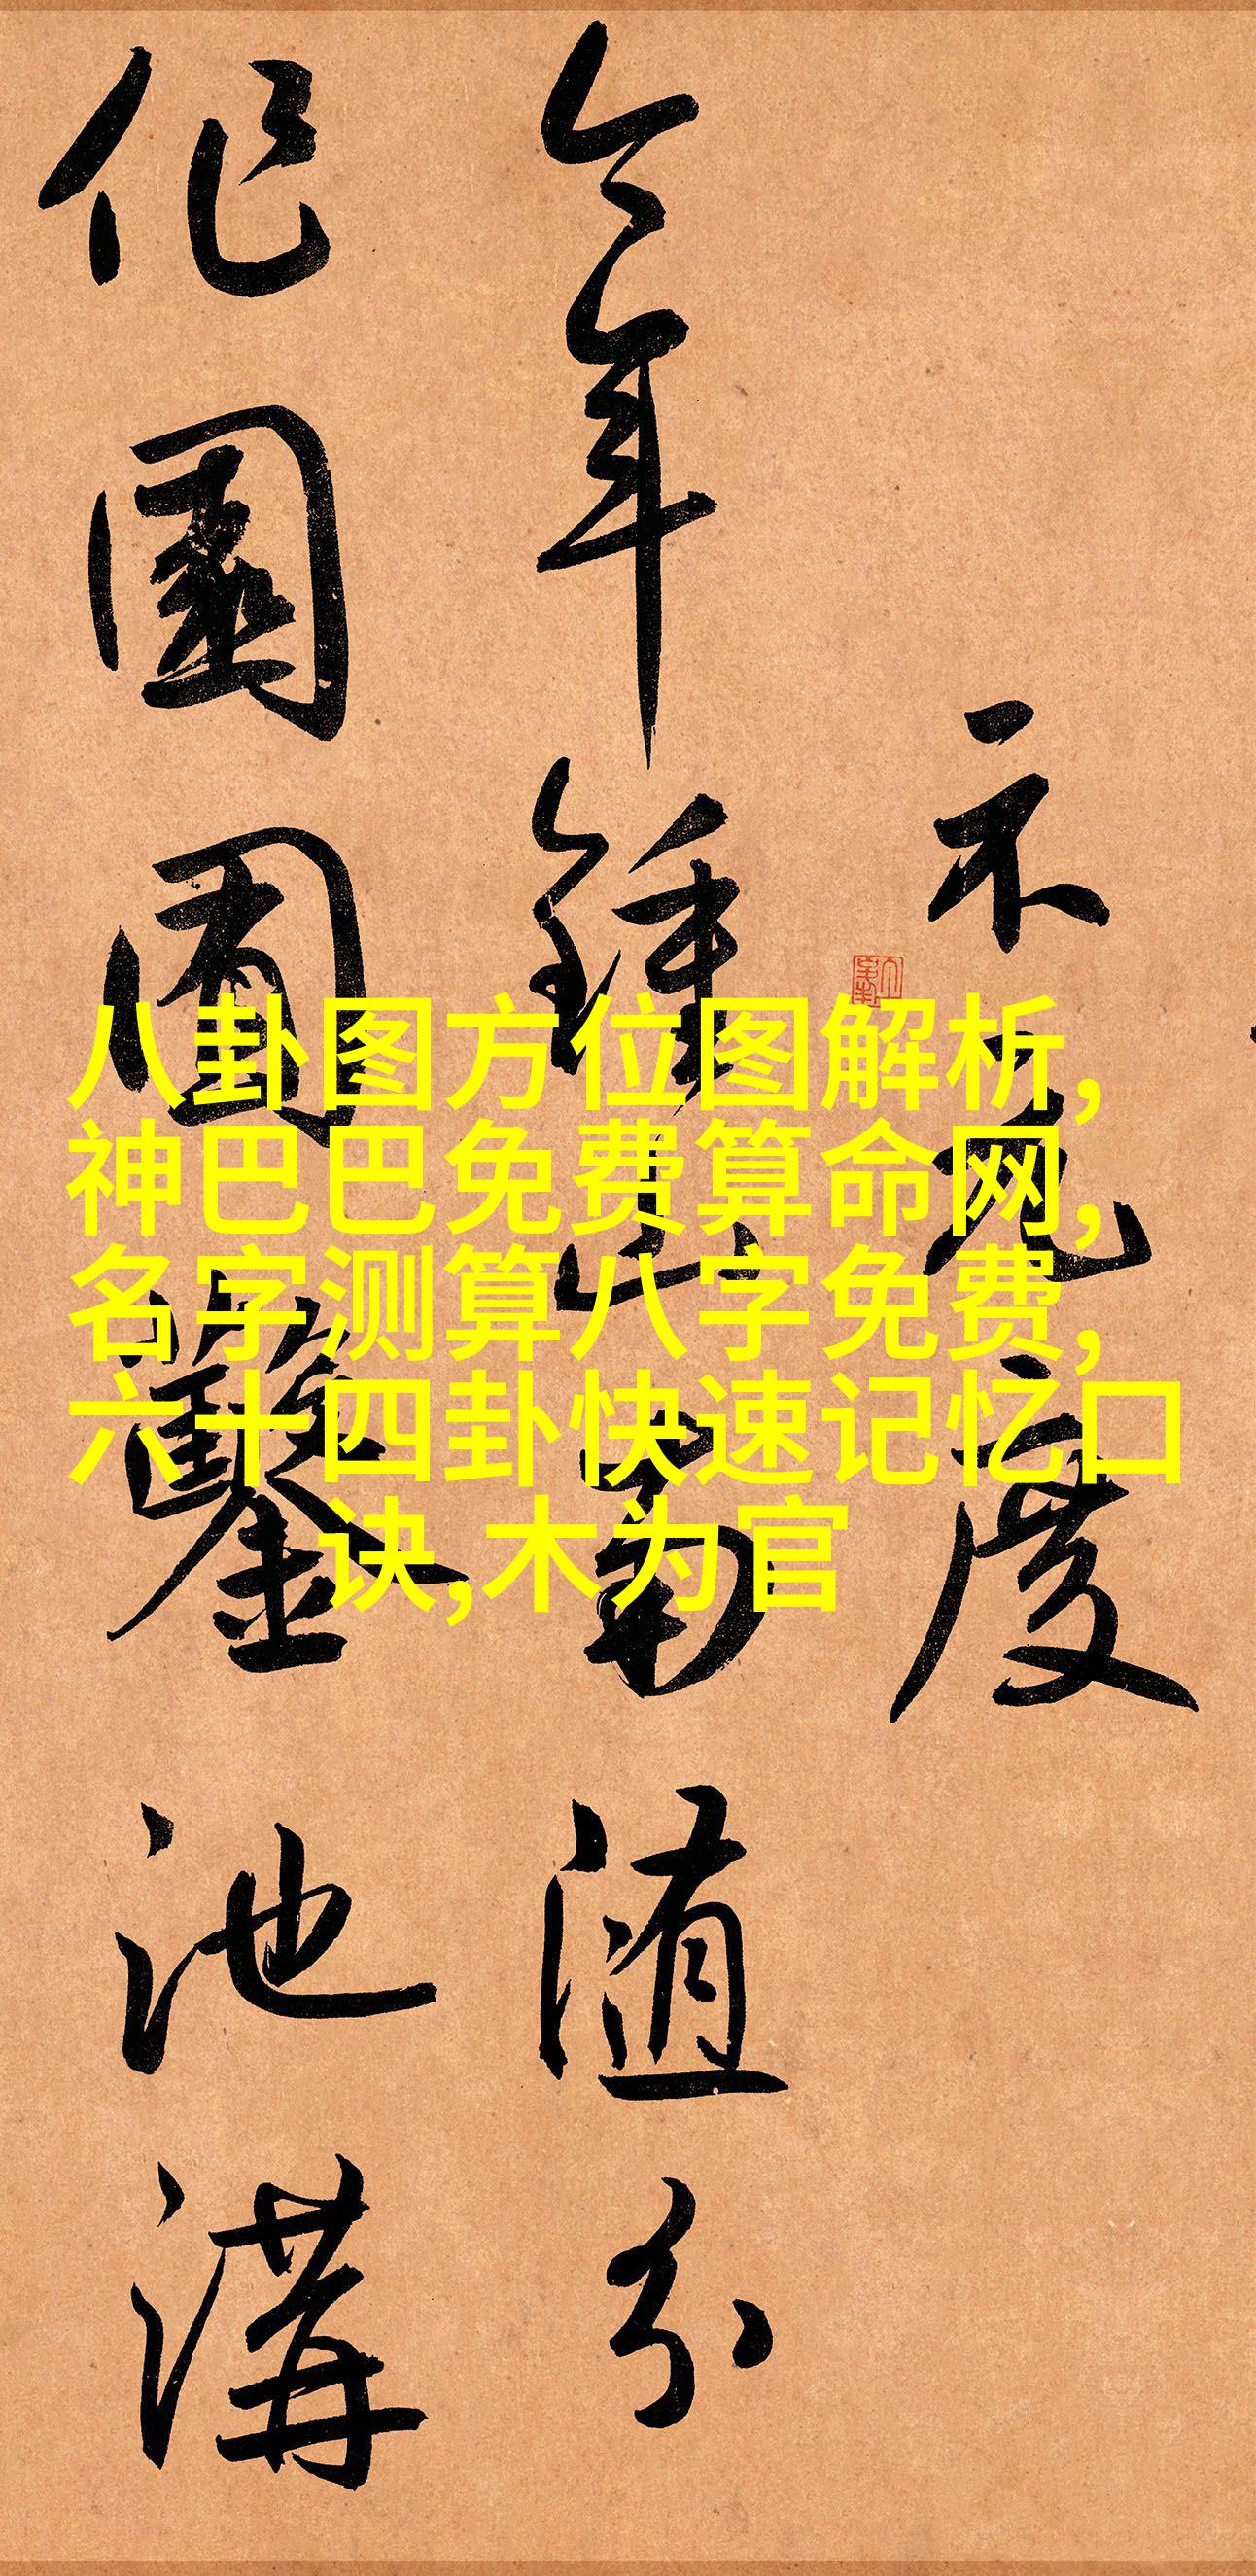 八卦图方位图解析,
神巴巴免费算命网,
名字测算八字免费,
六十四卦快速记忆口
诀,木为官
示元度
今年鍾山南随分
作園圃鑿池溝